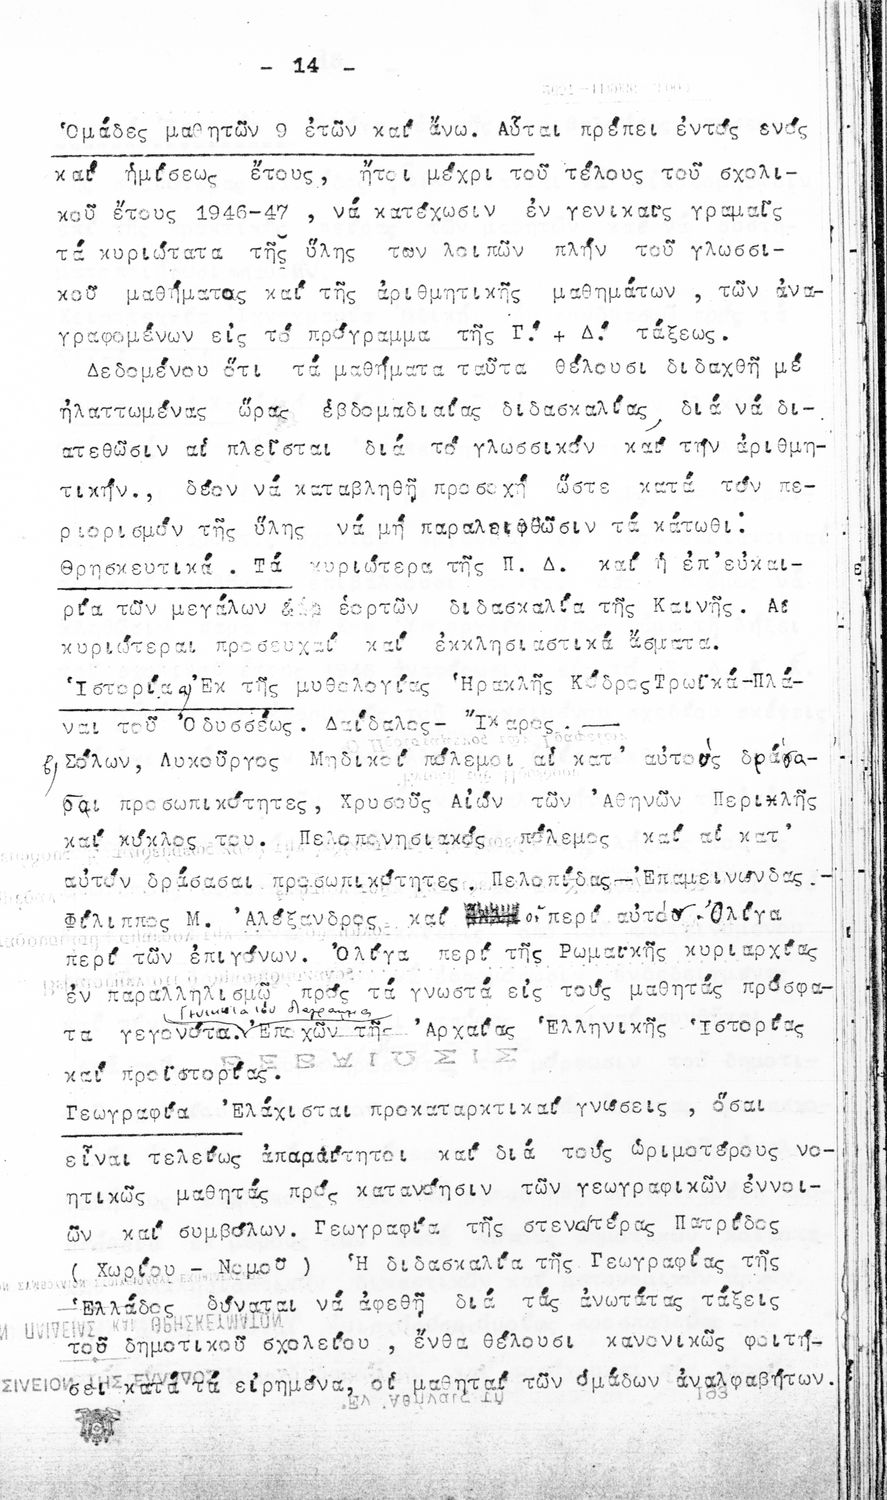 - 14 -
Ὁμάδες μαθητῶν 9 ἐτῶν καί ἄνω. Αὗται πρέπει ἐντός ενός
καί ἡμίσεως ἔτους, ἤτοι μέχρι τοῦ τέλους τοῦ σχολι-
κοῦ ἔτους 1946-47 , νά κατέχωσιν ἐν γενικαῖς γραμαῖς
τά κυριώτατα τῆς ὕλης των λοιπῶν πλήν τοῦ γλωσσι-
κοῦ μαθήματος καί τῆς ἀριθμητικῆς μαθημάτων , τῶν ἀνα-
γραφομένων εἰς τό πρόγραμμα τῆς Γ.΄ + Δ.΄ τάξεως.
Δεδομένου ὅτι τά μαθήματα ταῦτα θέλουσι διδαχθῆ μέ
ἠλαττωμένας ὥρας ἑβδομαδιαίας διδασκαλίας, διά νά δι-
ατεθῶσιν αἱ πλεῖσται διά τό γλωσσικόν καί τήν ἀριθμη-
τικήν., δέον νά καταβληθῆ προσοχή ὥστε κατά τόν πε-
ριορισμόν τῆς ὕλης νά μή παραλειφθῶσιν τά κάτωθι:
Θρησκευτικά . Τά κυριώτερα τῆς Π. Δ. καί ἡ ἐπ'εὐκαι-
ρία τῶν μεγάλων ἑορτῶν διδασκαλία τῆς Καινῆς. Αἱ
κυριώτεραι προσευχαί καί ἐκκλησιαστικά ἄσματα.
Ἱστορία α) Ἐκ τῆς μυθολογίας Ἡρακλῆς Κόδρος Τρωϊκά-Πλά-
ναι τοῦ Ὀδυσσέως. Δαίδαλος- Ἴκαρος.—
β) Σόλων, Λυκοῦργος Μηδικοί πόλεμοι αἱ κατ' αὐτούς δράσα-
σαι προσωπικότητες, Χρυσοῦς Αἰών τῶν Ἀθηνῶν Περικλῆς
καί κύκλος του. Πελοπονησιακός πόλεμος καί αἱ κατ'
αὐτόν δράσασαι προσωπικότητες. Πελοπίδας-Ἐπαμεινώνδας.-
Φίλιππος Μ. Ἀλέξανδρος καί οἱ περί αὐτόν. Ὀλίγα
περί τῶν ἐπιγόνων. Ὀλίγα περί τῆς Ρωμαϊκῆς κυριαρχίας
ἐν παραλληλισμῷ πρός τά γνωστά εἰς τούς μαθητάς πρόσφα-
τα γεγονότα. Ἐποχῶν τῆς Ἀρχαίας Ἑλληνικῆς Ἱστορίας
καί προϊστορίας.
Γεωγραφία Ἐλάχισται προκαταρκτικαί γνώσεις , ὅσαι
εἶναι τελείως ἀπαραίτητοι καί διά τούς ὡριμοτέρους νο-
ητικῶς μαθητάς πρός κατανόησιν τῶν γεωγραφικῶν ἐννοι-
ῶν καί συμβόλων. Γεωγραφία τῆς στενωτέρας Πατρίδος
( Χωρίου - Νομοῦ ) Ἡ διδασκαλία τῆς Γεωγραφίας τῆς
Ἑλλάδος δύναται νά ἀφεθῆ διά τάς ἀνωτάτας τάξεις
τοῦ δημοτικοῦ σχολείου , ἔνθα θέλουσι κανονικῶς φοιτή-
σει κατά τά εἰρημένα, οἱ μαθηταί τῶν ὁμάδων ἀναλφαβήτων.